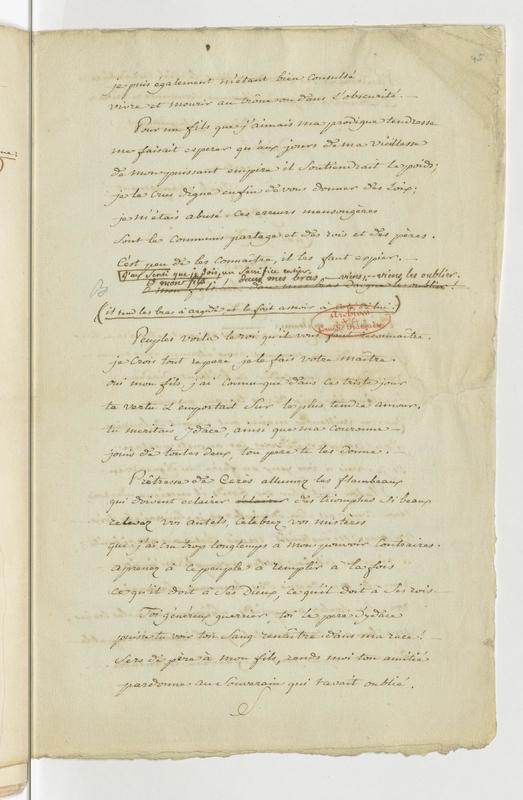 45
je puis également m'étant bien consulté
vivre et mourir au trône ou dans l'obscurité.
Pour un fils que j'aimais ma prodigue tendresse
me faisait esperer qu'aux jours de ma vieillesse
de mon puissant empire il soutiendrait le poids;
je le crus digne enfin de vous donner des loix;
je m'étais abusé. ces erreurs mensongères
sont le commun partage et des rois et des pères.
C'est peu de les connaître, il les faut expier.
j'ay senti que je dois, un sacrifice entier.
ô mon fils! dans mes bras, viens, viens les oublier.
(il tend les bras à arcade et le fait asseoir à côté de lui.)
Archives
Comédie Française
Peuples voila le roi qu'il vous faut reconnaître.
je crois tout reparer je le fais votre maître.
oui mon fils, j'ai connu que dans ce triste jour
ta vertu l'emportait sur le plus tendre amour,
tu meritais ydace, ainsi que ma couronne
jouis de toutes deux, ton père te les donne.
Prêtresse de Cerès allumez les flambeaux
qui doivent eclairer des triomphes si beaux
relevez vos autels, celebrez vos mistères
que j'ai cru trop longtemps à mon pouvoir contraires.
aprenez à ce peuple à remplir à la fois
ce qu'il doit à ses Dieux, ce qu'il doit à ses rois
Toi généreux guerrier, toi le père d'ydace
puisses tu voir ton sang renaître dans ma race!
sers de père à mon fils, rends moi ton amitié
pardonne au souverain qui t'avait oublié.